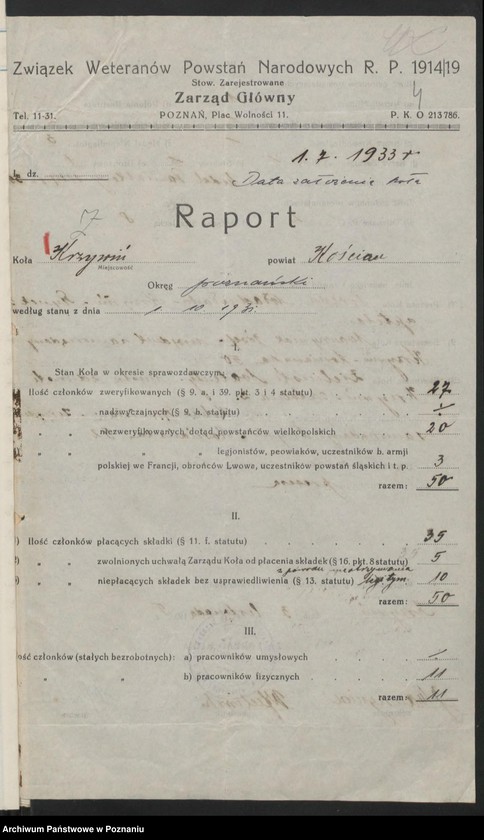 Związek Weteranów Powstań Narodowych R. P. 1914/19
4
Stow. Zarejestrowane
Zarząd Główny
Tel. 11-31. POZNAŃ, Plac Wolności 11. P. K. O 213 786.
1. 7. 1933 r
L. dz.
Data założenia koła
7
Raport
Koła Krzywiń powiat Kościan
Miejscowość
Okręg poznański
według stanu z dnia 1. 10. 193
I.
Stan Koła w okresie sprawozdawczym
Ilość członków zweryfikowanych (§ 9. a. i 39. pkt. 3 i 4 statutu) 27
„ nadzwyczajnych (§ 9. h. statutu) /.
„ „ niezweryfikowanych dotąd powstańców wielkopolskich 20
„ „ „ legjonistów, peowiaków, uczestników b. armji
polskiej we Francji, obrońców Lwowa, uczestników powstań śląskich i t. p. 3
razem: 50
II.
Ilość członków płacących składki (§ 11. f. statutu) 35
„ „ zwolnionych uchwałą Zarządu Koła od płacenia składek (§ 16. pkt. 8 statutu) 5
z powodu
„ „ niepłacących składek bez usprawiedliwienia (§ 13. statutu) 10
razem: 50
III.
Ilość członków (stałych bezrobotnych): a) pracowników umysłowych /.
„ „ b) pracowników fizycznych 11
razem: 11
Archiwum Państwowe w Poznaniu